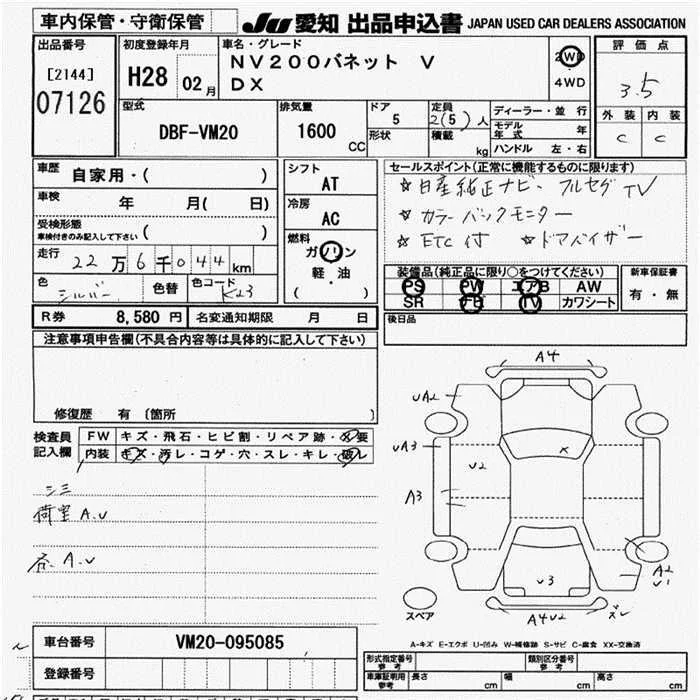 車内保管・守衛保管 JU 愛知 出品申込書 JAPAN USED CAR DEALERS ASSOCIATION
出品番号 初度登録年月 車名・グレード 評価点
[2144] H28 02月 NV200バネット V 2WD
07126 DX 4WD 3.5
型式 排気量 ドア 定員 ディーラー・並行 外装 内装
DBF-VM20 1600 CC 5 2(5)人 モデル年式 年 C C
形状 積載 kg ハンドル 左・右
車歴 自家用・( ) シフト AT セールスポイント(正常に機能するものに限ります)
車検 年 月( 日) 冷房 AC ☆日産純正ナビ、フルセグTV
受検形態 ( ) ☆カラーバックモニター
車検付きのみ記入して下さい 燃料 ガソリン ☆ETC付 ☆ドアバイザー
走行 22万6千044km 軽・油
色 シルバー 色替 色コード K23 ( )
装備品(純正品に限り○をつけてください) 新車保証書
PS PW エアB AW 有・無
SR TV カワシート
R券 8,580円 名変通知期限 月 日 後日品
注意事項申告欄(不具合内容等は具体的に記入して下さい)
修復歴 有 〔箇所 〕
検査員 FW キズ・飛石・ヒビ割・リペア跡・X要
記入欄 内装 キズ・汚レ・コゲ・穴・スレ・キレ・破レ
シミ
荷室 A.V
A.V
A4
UA2
UA3
U2 X
A3
U3
A2
U1
A4U2 ズレ
スペア
A-キズ E-エクボ U-凹み W-補修跡 S-サビ C-腐食 XX-交換済
車台番号 VM20-095085
登録番号
形式指定番号 参考 類別区分番号 参考
車庫証明用 参考 長さ cm 幅 cm 高さ cm